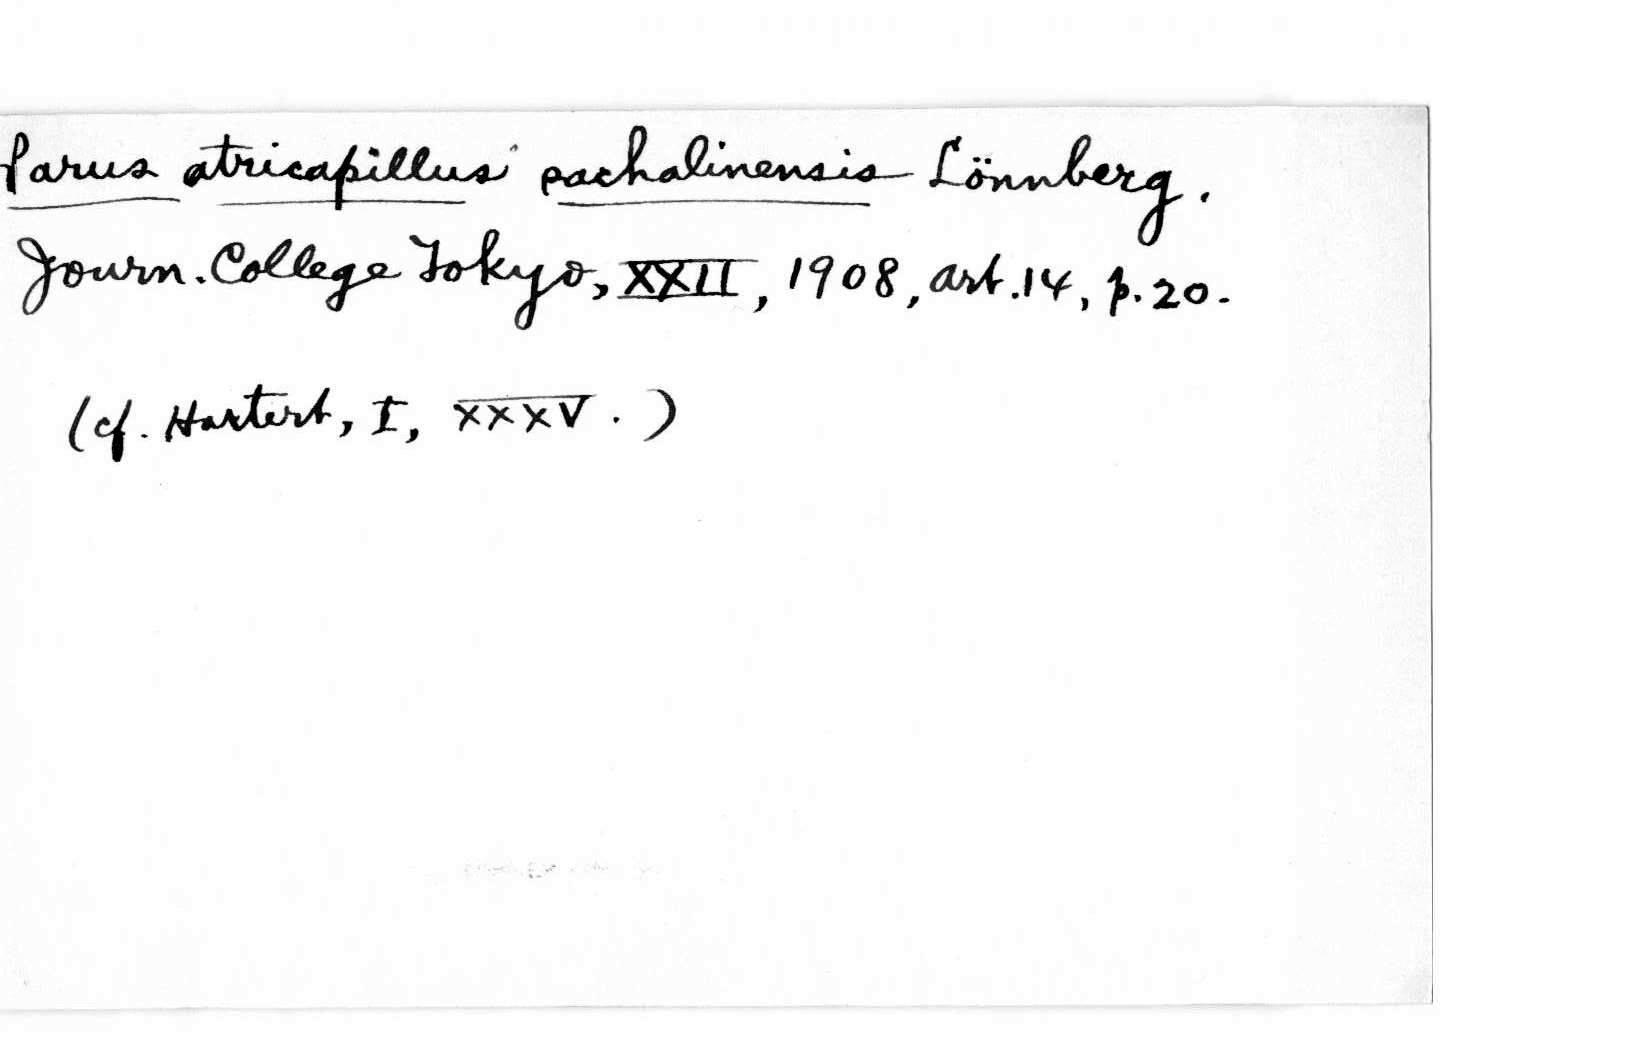 Parus atricapillus sachalinensis Lönnberg.
Journ. College Tokyo, XXII, 1908, art. 14, p. 20.
(cf. Hartert, I, XXXV.)